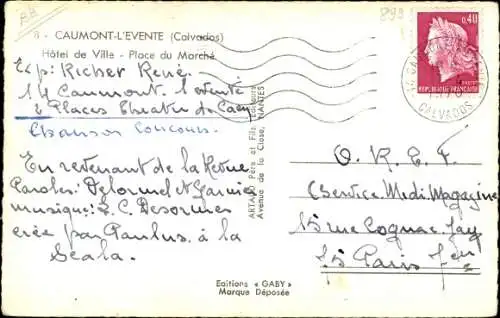 8 - CAUMONT-L'EVENTE (Calvados)
Hôtel de Ville - Place du Marché
Exp: Richer René
14 Caumont l'eventé
2 Places Theatre de Caen
Chanson Concours.
En revenant de la Revue
Paroles: Delormel et Garnier
musique: L. C. Desormes
crée par Paulus à la
Scala.
ARTAUD Père et Fils Éditeurs
Avenue de la Close, NANTES
Editions « GABY »
Marque Déposée
0,40
REPUBLIQUE FRANÇAISE
CALVADOS
O. R. T. F.
(Service Midi Magazine
15 rue Cognac Jay
75 Paris 7em